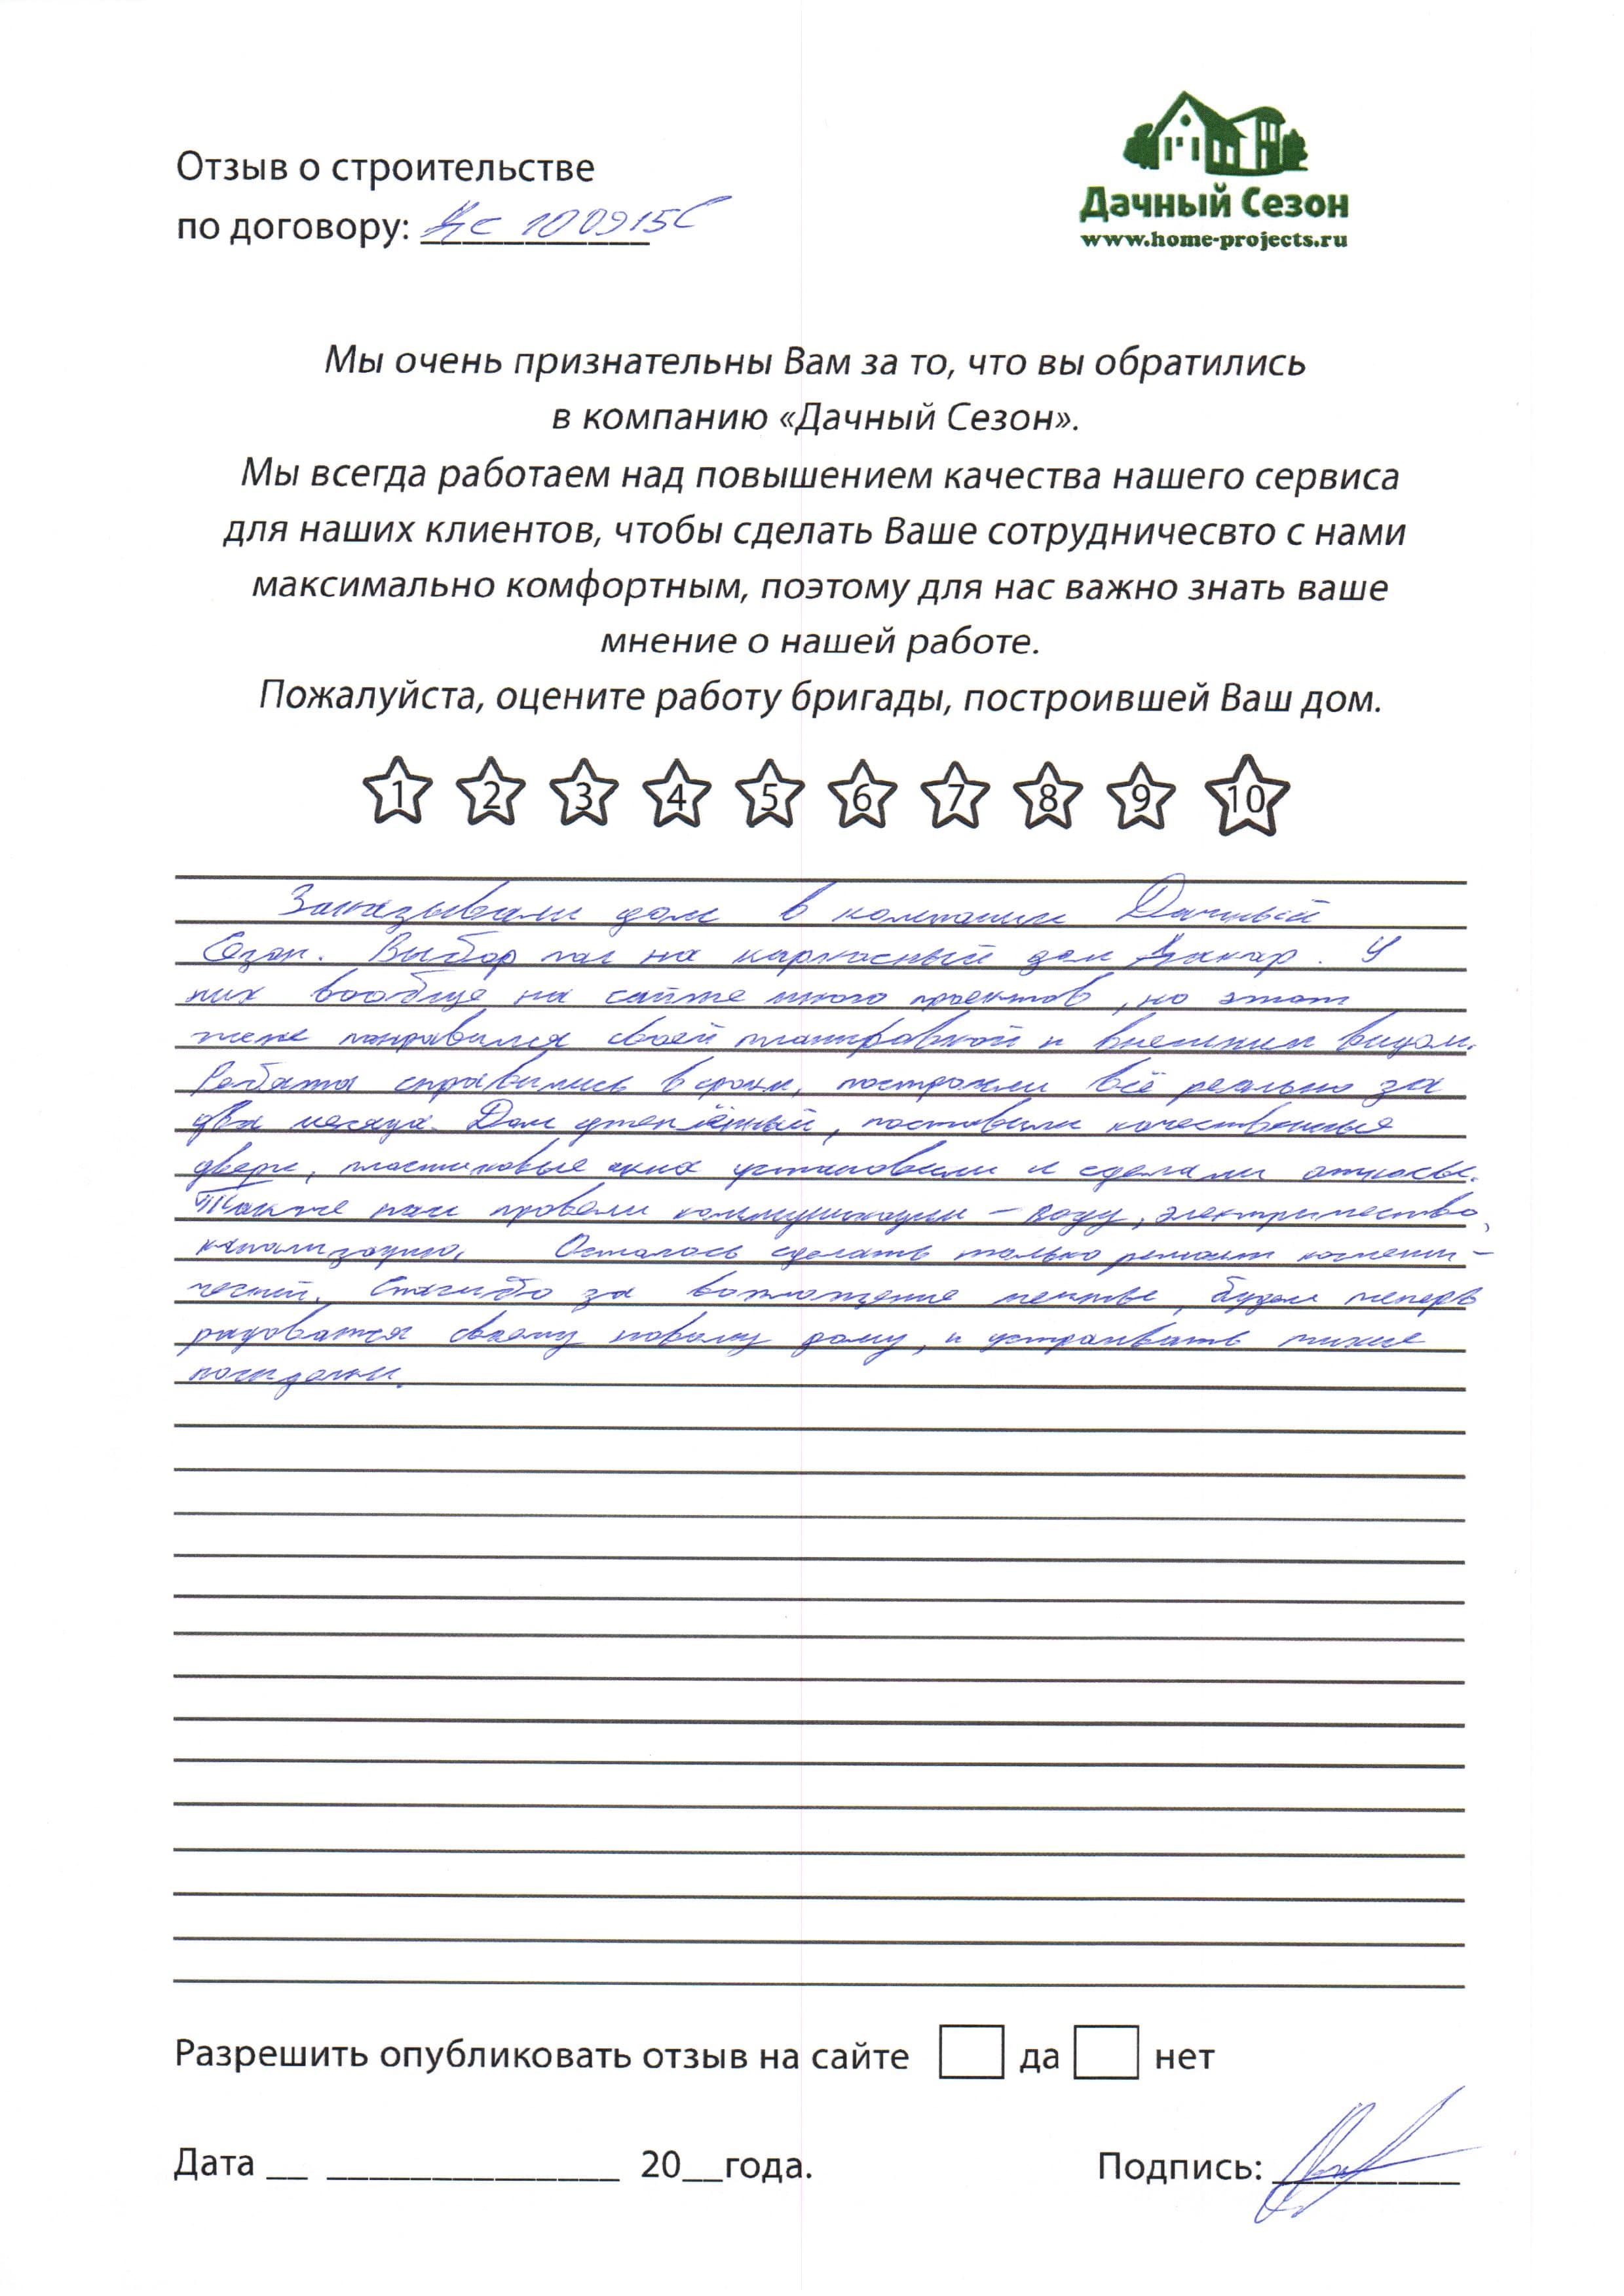 Отзыв о строительстве
по договору: ДС 100915С
Дачный Сезон
www.home-projects.ru
Мы очень признательны Вам за то, что вы обратились
в компанию «Дачный Сезон».
Мы всегда работаем над повышением качества нашего сервиса
для наших клиентов, чтобы сделать Ваше сотрудничесвто с нами
максимально комфортным, поэтому для нас важно знать ваше
мнение о нашей работе.
Пожалуйста, оцените работу бригады, построившей Ваш дом.
1 2 3 4 5 6 7 8 9 10
Заказывали дом в компании Дачный
Сезон. Выбор пал на каркасный дом . У
них вообще на сайте много проектов, но этот
понравился своей планировкой и внешним видом.
Ребята справились в сроки, построили всё реально за
два месяца. Дом утеплённый, поставили качественные
двери, пластиковые окна установили и сделали откосы.
Также нам провели коммуникации – воду, электричество,
канализацию. Осталось сделать только ремонт космети-
ческий. Спасибо за воплощение мечты, будем теперь
радоваться своему новому дому, и устраивать тихие
посиделки.
Разрешить опубликовать отзыв на сайте да нет
Дата __ ______________ 20__года. Подпись: